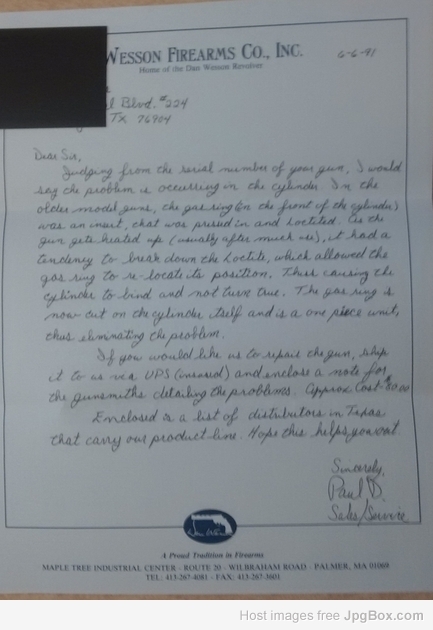 WESSON FIREARMS CO., INC.
Home of the Dan Wesson Revolver
6-6-91
Blvd. #224
TX 76904
Dear Sir,
Judging from the serial number of your gun, I would
say the problem is occurring in the cylinder. In the
older model guns, the gas ring (on the front of the cylinder)
was an insert, that was pressed in and Loctited. As the
gun gets heated up (usually after much use), it had a
tendency to break down the Loctite, which allowed the
gas ring to re-locate its position. Thus causing the
cylinder to bind and not turn true. The gas ring is
now cut on the cylinder itself and is a one piece unit,
thus eliminating the problem.
If you would like us to repair the gun, ship
it to us via UPS (insured) and enclose a note for
the gunsmiths detailing the problems. Approx Cost $80.00
Enclosed is a list of distributors in Texas
that carry our product line. Hope this helps you out.
Sincerely,
Paul D.
Sales/Service
Dan Wesson
A Proud Tradition in Firearms
MAPLE TREE INDUSTRIAL CENTER - ROUTE 20 - WILBRAHAM ROAD - PALMER, MA 01069
TEL: 413-267-4081 - FAX: 413-267-3601
Host images free JpgBox.com